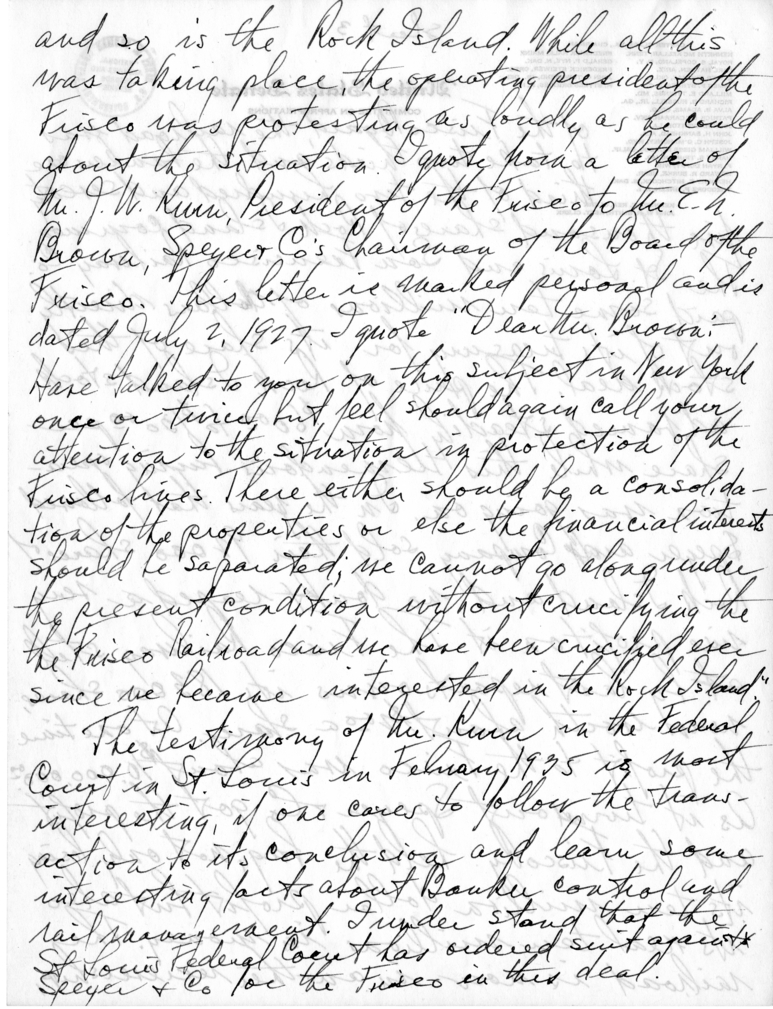 and so is the Rock Island. While all this
was taking place, the operating president of the
Frisco was protesting as loudly as he could
about the situation. I quote from a letter of
Mr. J. W. Kurn, President of the Frisco to Mr. E. N.
Brown, Speyer & Co's Chairman of the Board of the
Frisco. This letter is marked personal and is
dated July 2, 1927. I quote "Dear Mr. Brown:-
Have talked to you on this subject in New York
once or twice, but feel should again call your
attention to the situation in protection of the
Frisco lines. There either should be a consolida-
tion of the properties or else the financial interests
should be saparated; we cannot go along under
the present condition without crucifying the
the Frisco Railroad and we have been crucified ever
since we became interested in the Rock Island."
The testimony of Mr. Kurn in the Federal
Court in St. Louis in February 1935 is most
interesting, if one cares to follow the trans-
action to its conclusion and learn some
interesting facts about Banker control and
rail management. I under stand that the
St Louis Federal Court has ordered suit against
Speyer & Co for the Frisco in this deal.